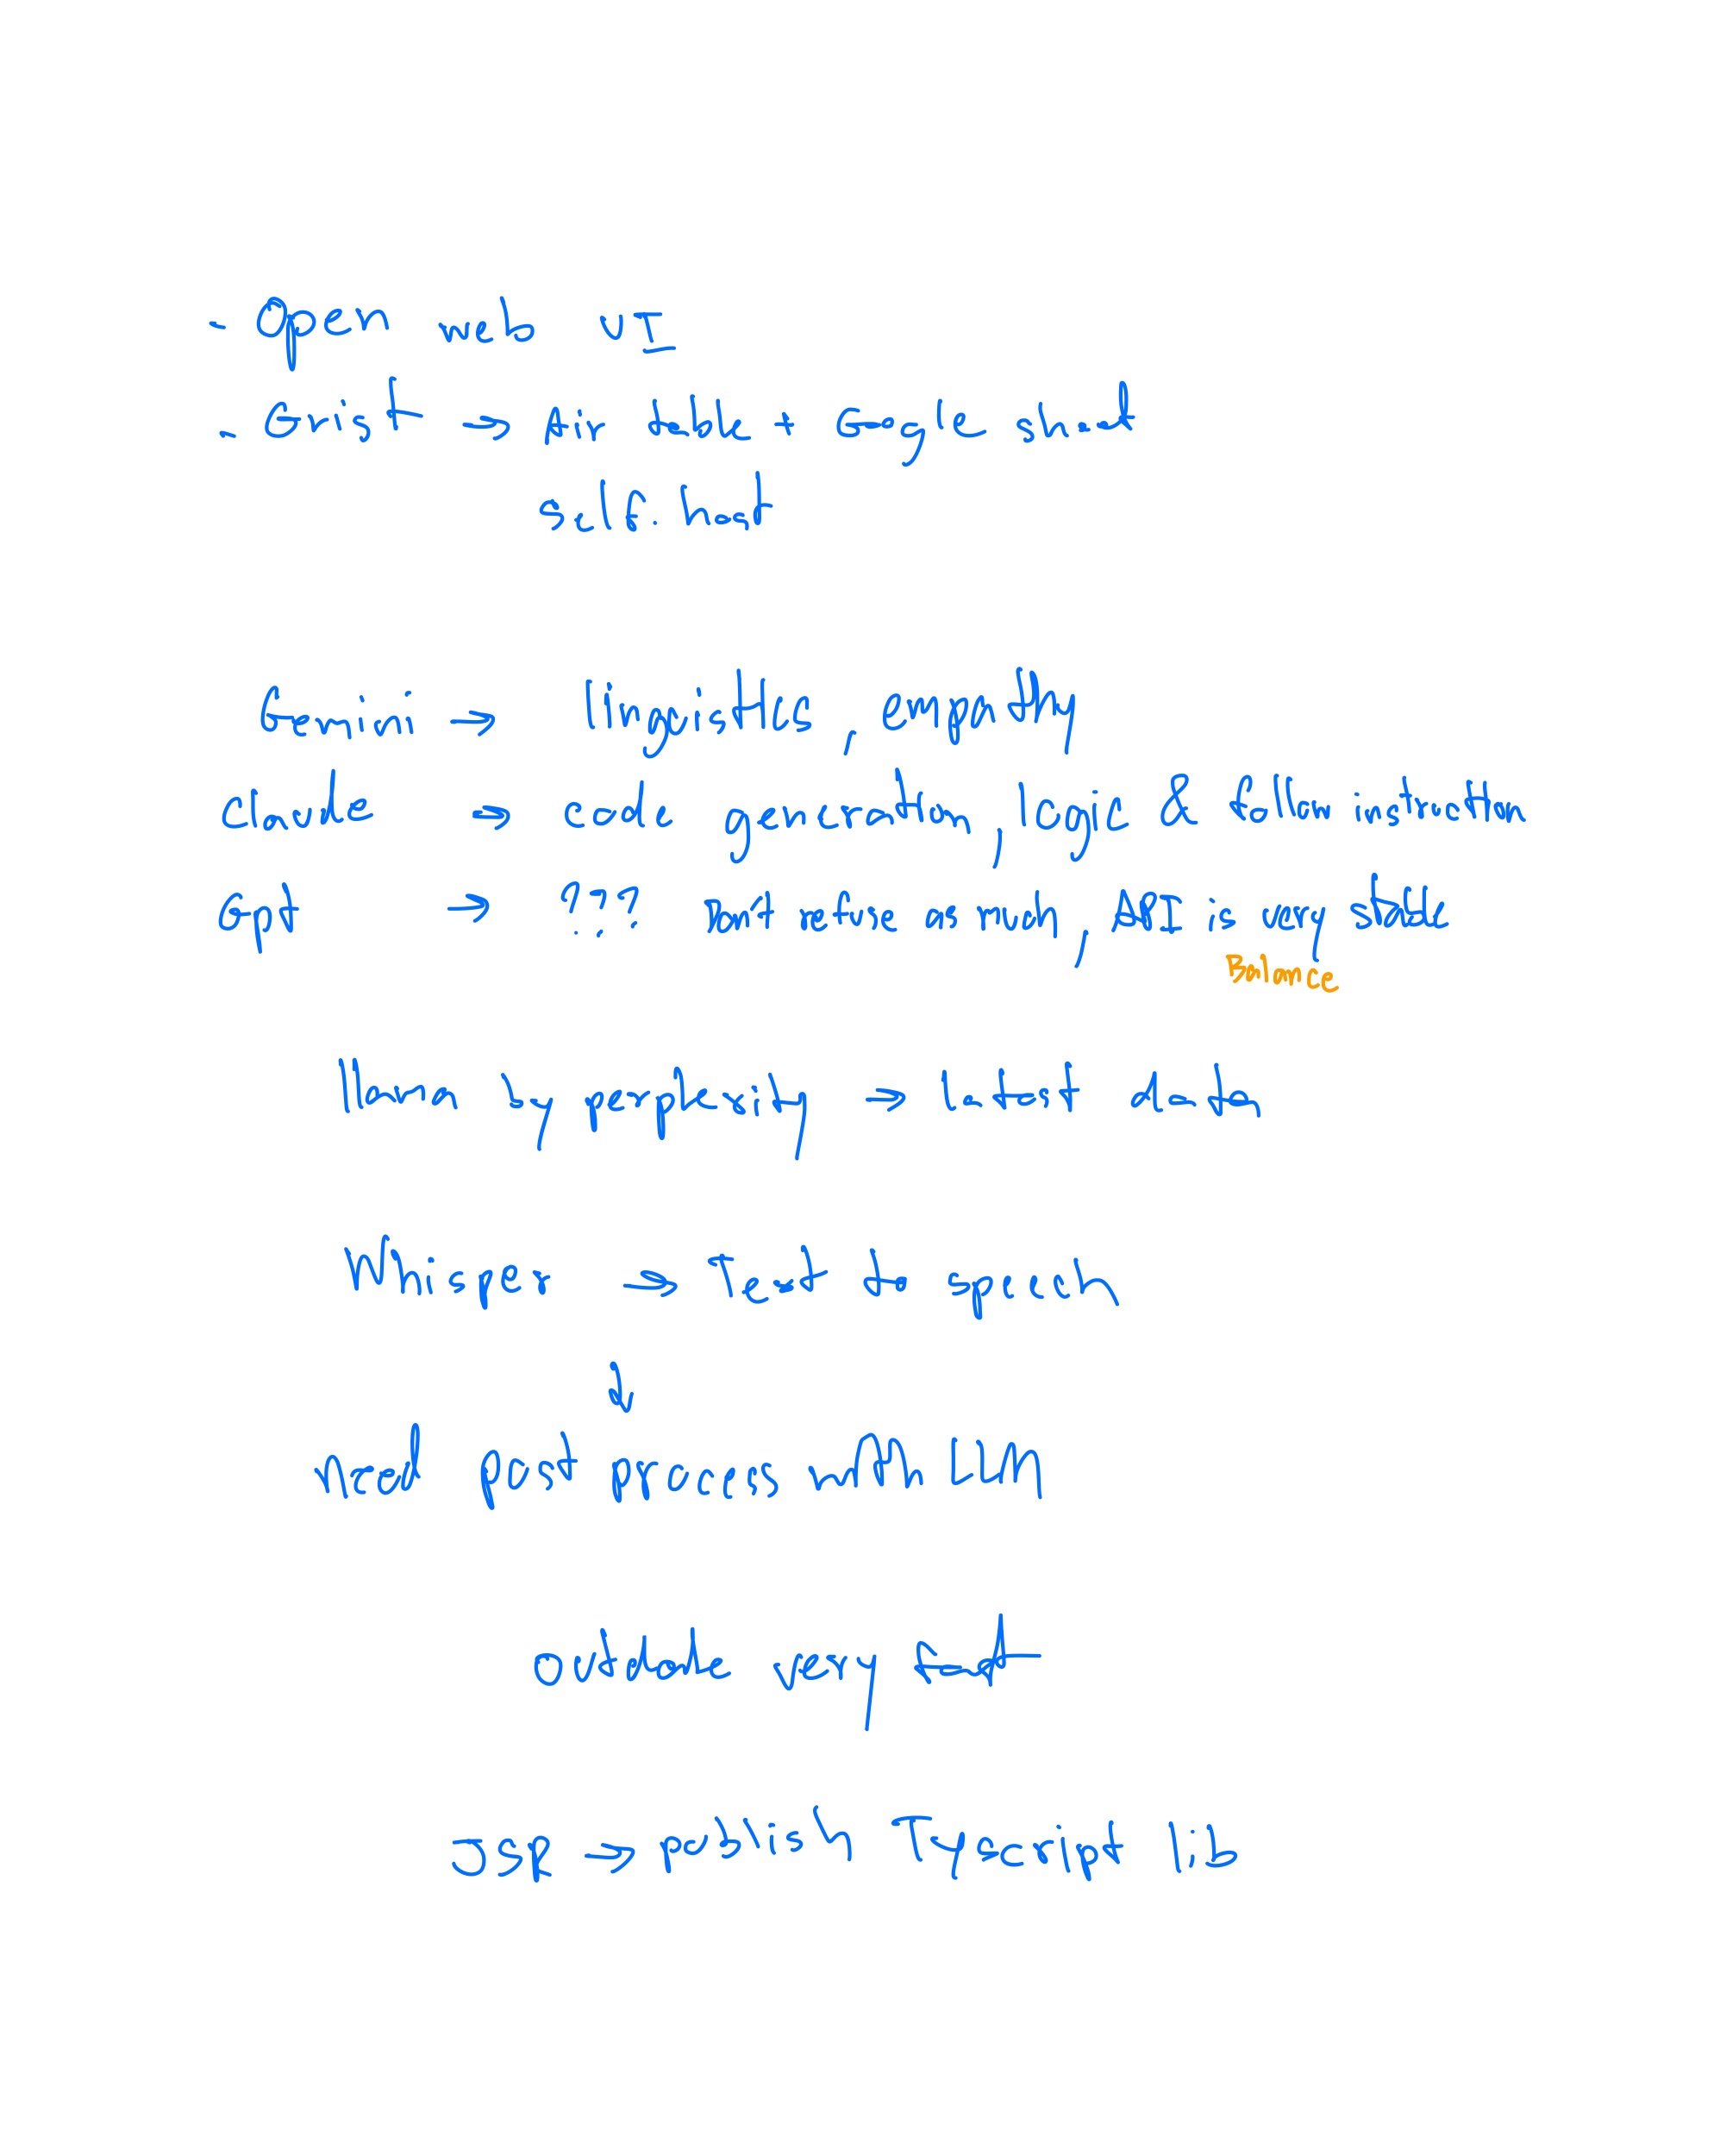 - Open web UI
- Grist → Air table + Google sheet
self. host
Gemini → linguistics, empathy
claude → code generation, logic & follow instruction
Gpt → ??? Don't refuse as much, API is very stable
Balance
llama by perplexity → latest data
Whisper → Text to speech
↓
need post process with LLM
outdate very fast
JSR → publish Typescript lib